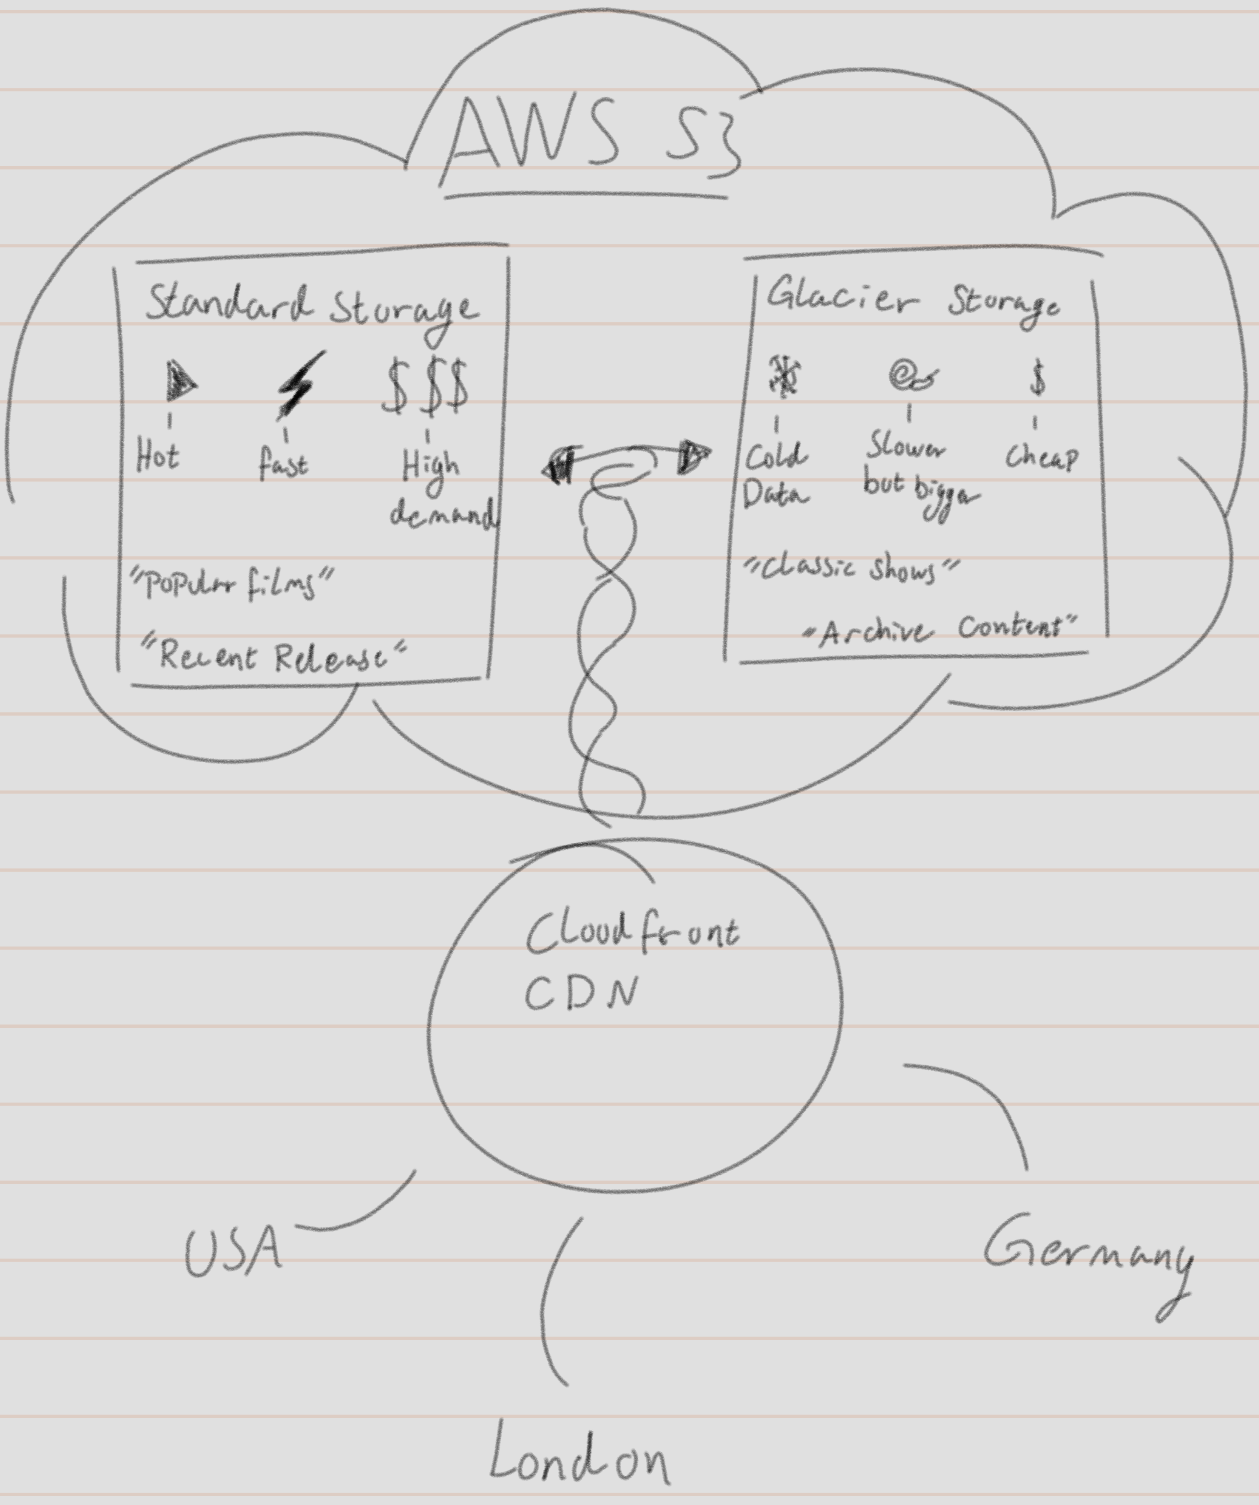 AWS S3
Standard Storage
$ $$
Hot
fast
High
demand
"Popular films"
"Recent Release"
Glacier Storage
$
Cold
Data
Slower
but bigger
Cheap
"Classic shows"
"Archive Content"
Cloudfront
CDN
USA
Germany
London